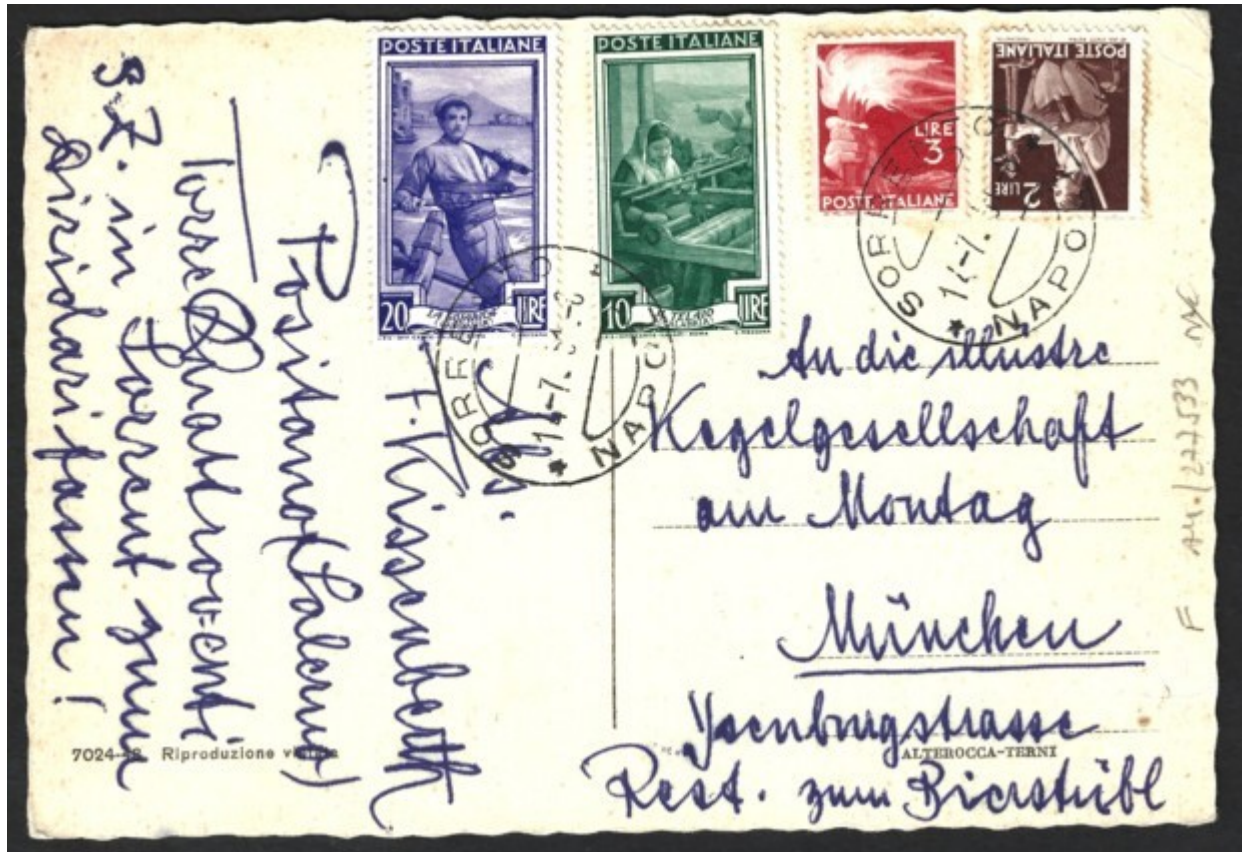 POSTE ITALIANE
20 LIRE
POSTE ITALIANE
10 LIRE
LIRE
3
POSTE ITALIANE
POSTE ITALIANE
2 LIRE
SORRENTO
14-7.
* NAPOLI
SORRENTO
14-7.
* NAPOLI
An die illustre
Kegelgesellschaft
am Montag
München
Ysenburgstrasse
Rest. zum Bierstübl
F. Kissenberth
Positano (Salerno)
Torre Quatroventi
s. Z. in Sorrent zum
7024-42 Riproduzione vietata
ALTEROCCA-TERNI